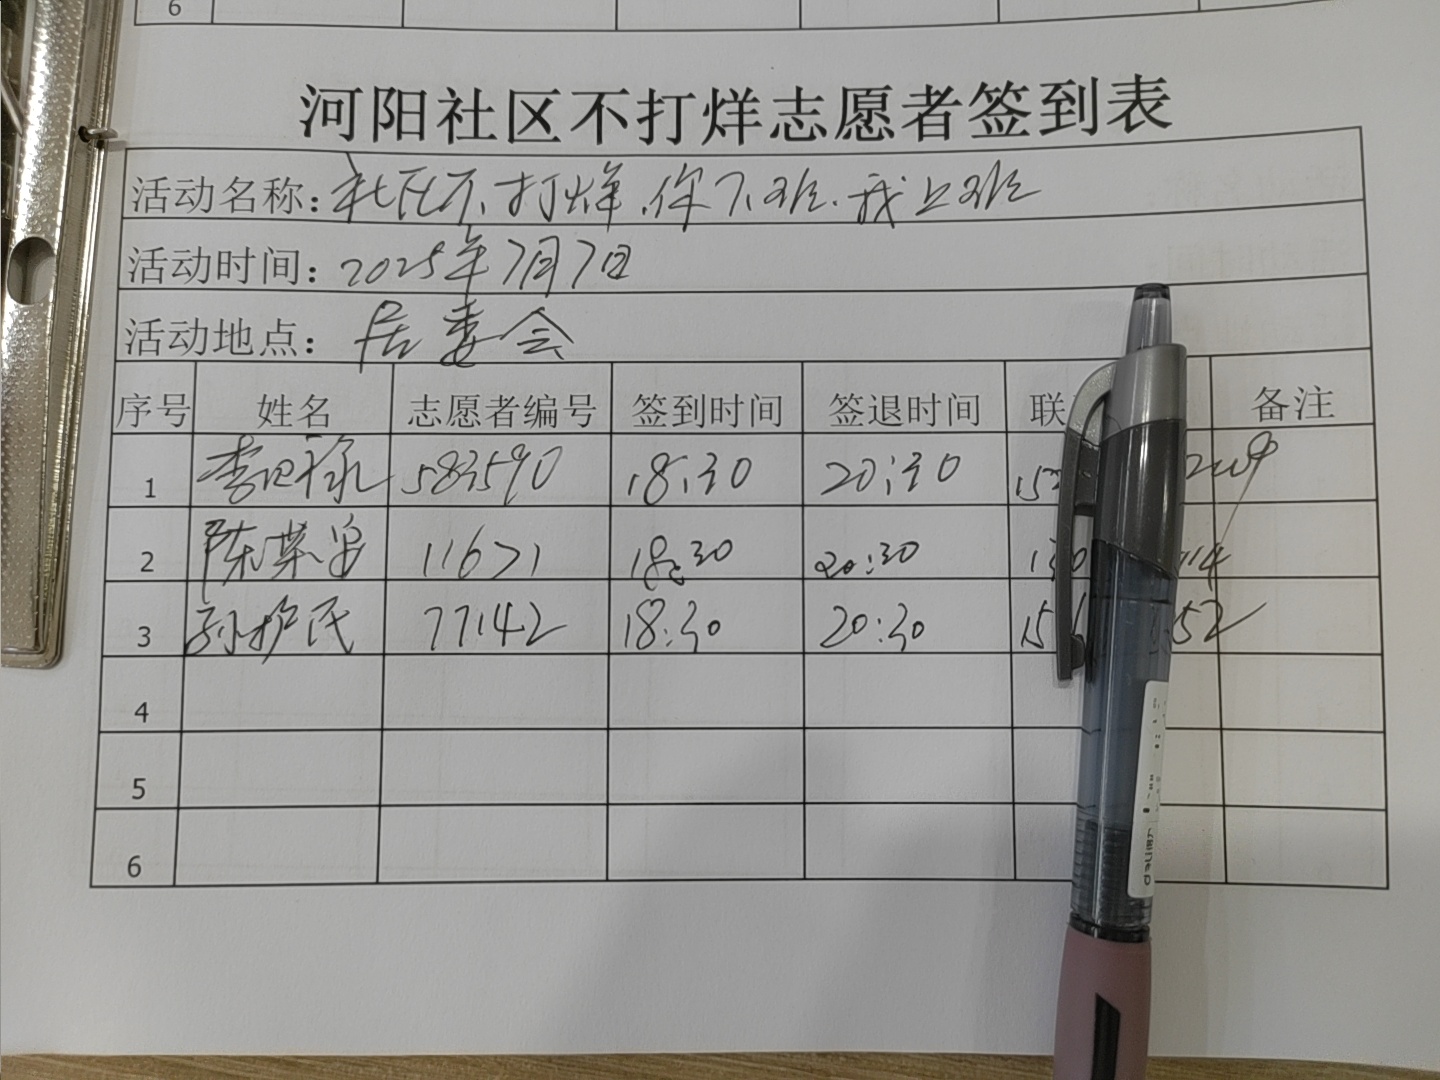 6
河阳社区不打烊志愿者签到表
活动名称：社区不打烊.你下班.我上班
活动时间：2025年7月7日
活动地点：居委会
序号 姓名 志愿者编号 签到时间 签退时间 联 备注
1 李 583590 18:30 20:30 152
2 陈荣 11671 18:30 20:30 130 114
3 孙护民 77142 18:30 20:30 151 52
4
5
6